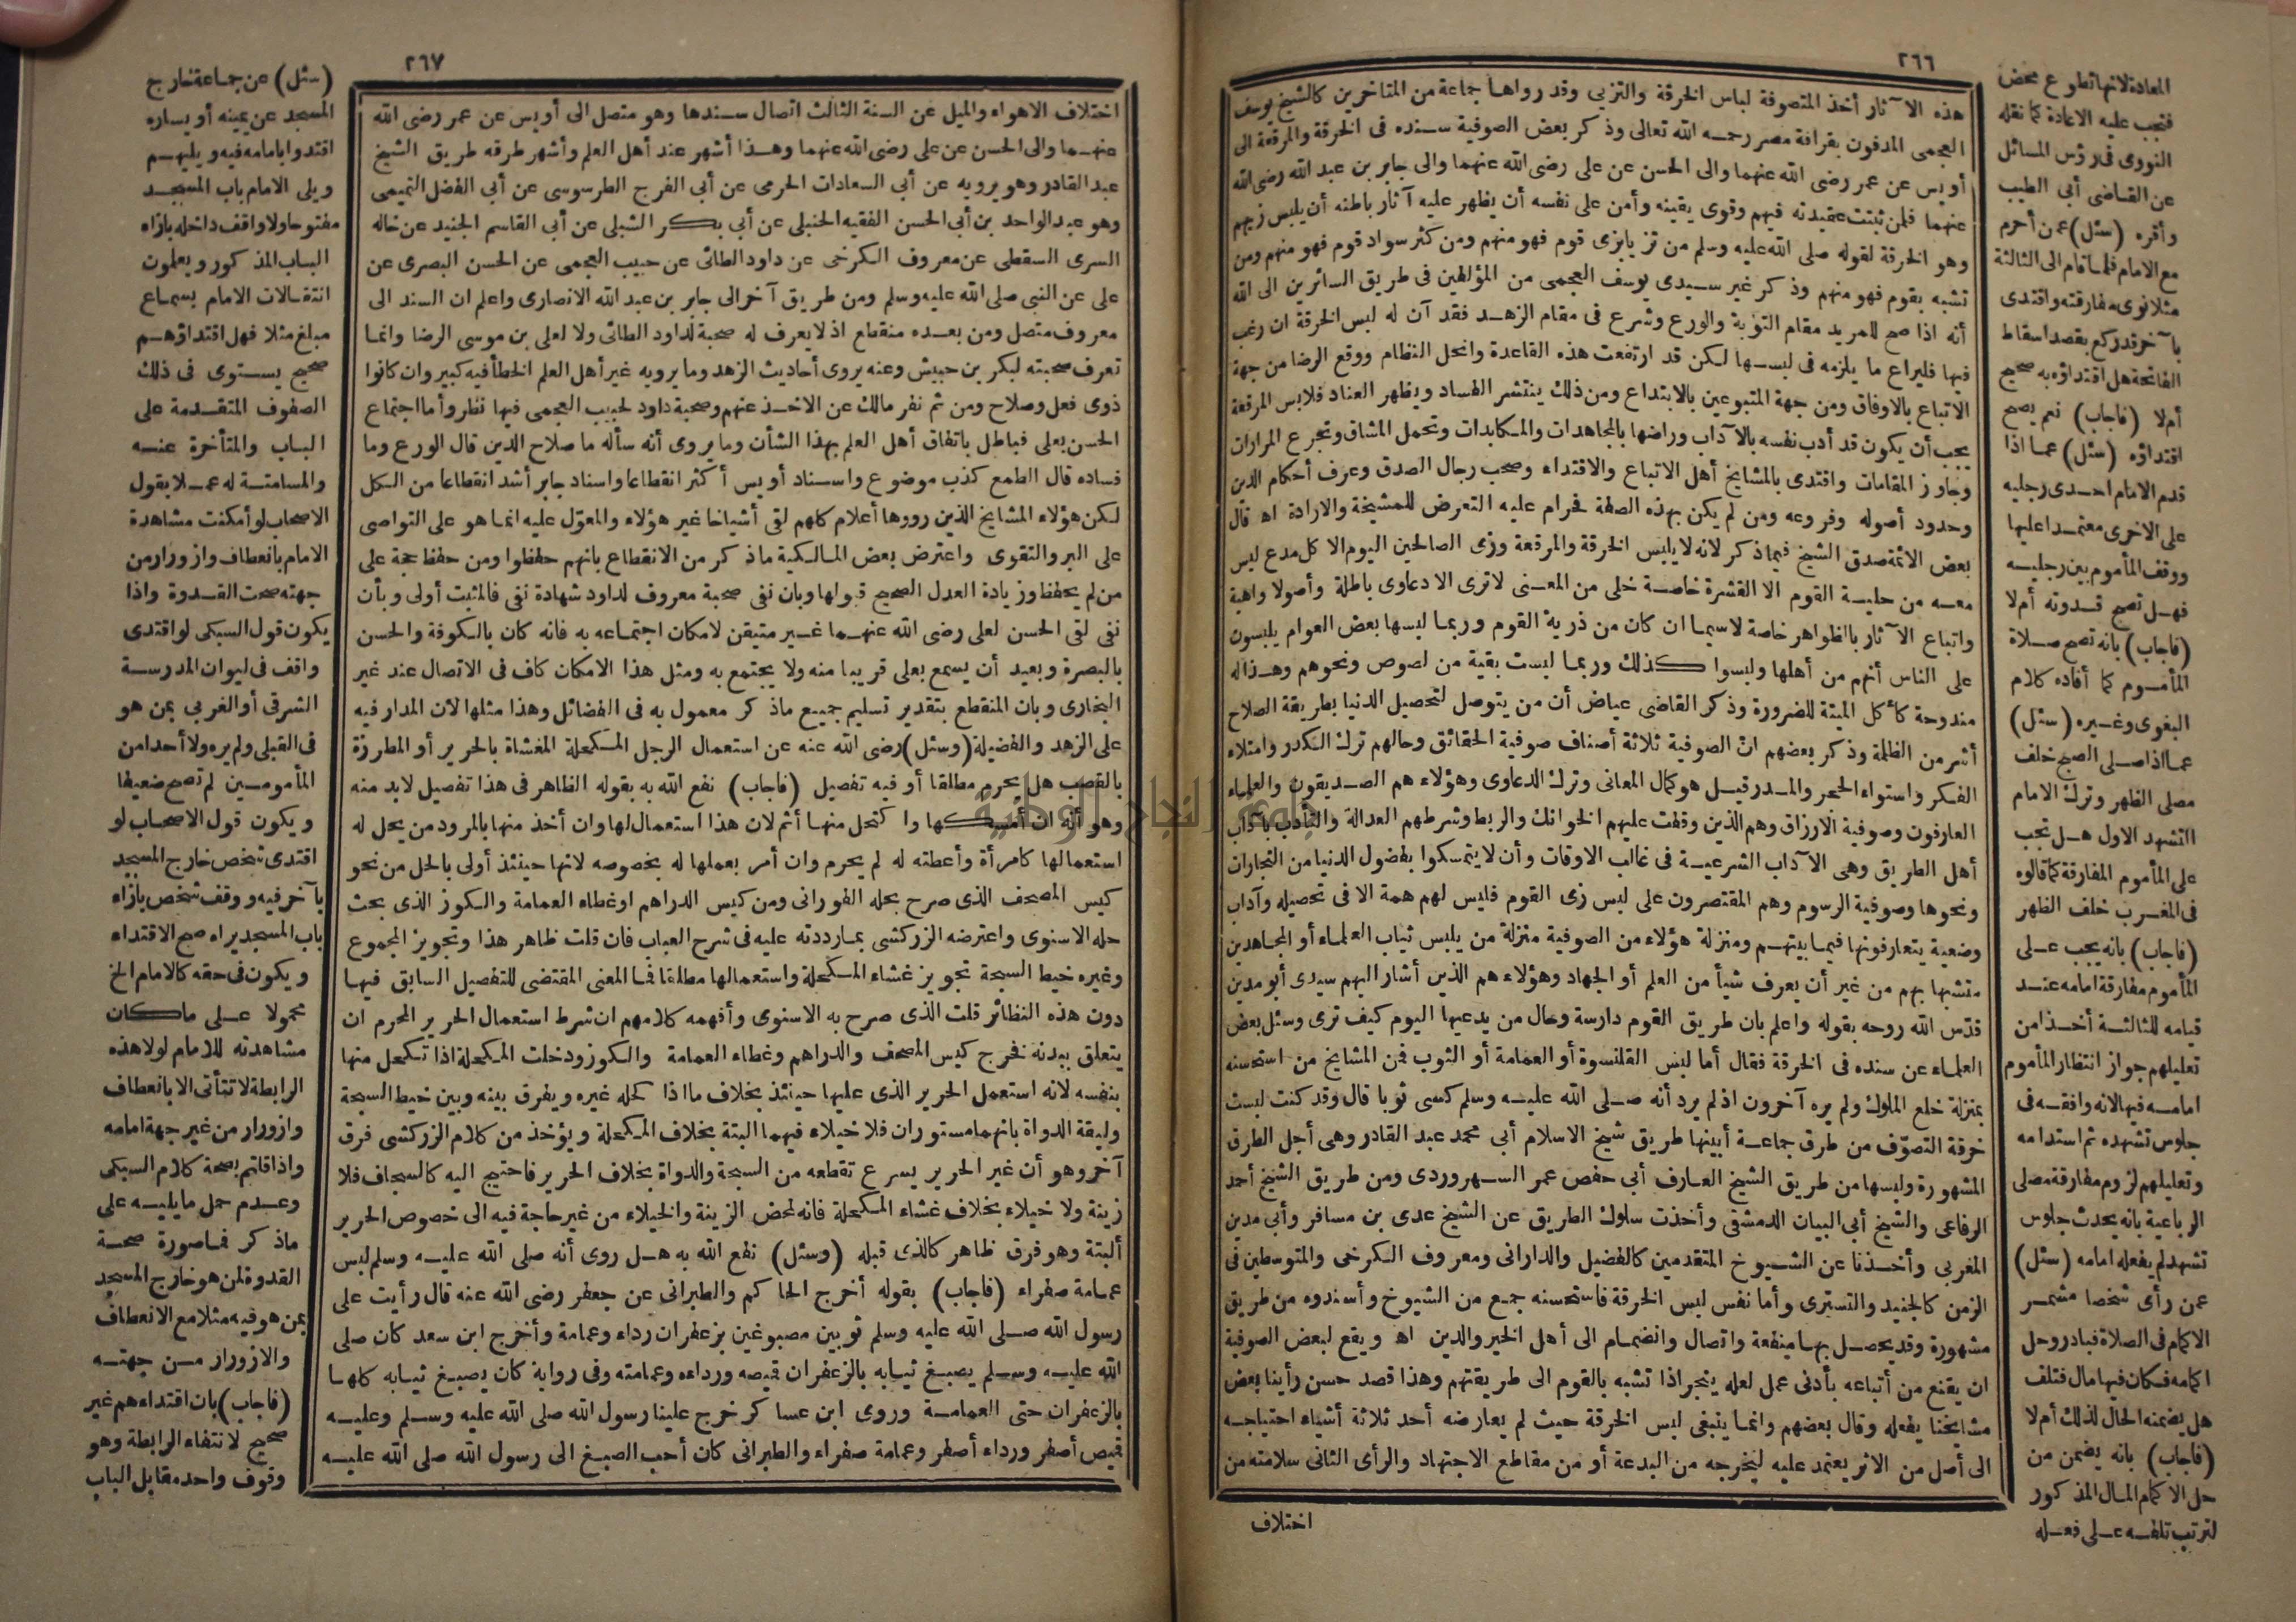 ٢٦٦
هذه الآثار أخذ المتصوفة لباس الخرقة والتزيى وقد رواها جماعة من المتأخرين كالشيخ يوسف
العجمى المدفون بقرافة مصر رحمه الله تعالى وذكر بعض الصوفية سنده فى الخرقة والمرقعة الى
أويس عن عمر رضى الله عنهما والى الحسن عن على رضى الله عنهما والى جابر بن عبد الله رضى الله
عنهما فلمن ثبتت عقيدته فيهم وقوى يقينه وأمن على نفسه أن يظهر عليه آثار باطنه أن يلبس زيهم
وهو الخرقة لقوله صلى الله عليه وسلم من تزيا بزى قوم فهو منهم ومن كثر سواد قوم فهو منهم ومن
تشبه بقوم فهو منهم وذكر غير سيدى يوسف العجمى من المؤلفين فى طريق السائرين الى الله
أنه اذا صح للمريد مقام التوبة والورع وشرع فى مقام الزهد فقد آن له لبس الخرقة ان رغب
فيها فليراع ما يلزمه فى لبسها لكن قد ارتفعت هذه القاعدة وانحل النظام ووقع الرضا من جهة
الاتباع بالاوفاق ومن جهة المتبوعين بالابتداع ومن ذلك ينتشر الفساد ويظهر العناد فلابس المرقعة
يجب أن يكون قد أدب نفسه بالآداب وراضها بالمجاهدات والمكابدات وتحمل المشاق وتجرع المرارات
وجاوز المقامات واقتدى بالمشايخ أهل الاتباع والاقتداء وصحب رجال الصدق وعرف أحكام الدين
وحدود أصوله وفروعه ومن لم يكن بهذه الصفة فحرام عليه التعرض للمشيخة والارادة اه قال
بعض الائمة صدق الشيخ فيما ذكر لانه لا يلبس الخرقة والمرقعة وزى الصالحين اليوم الا كل مدع ليس
معه من حلية القوم الا القشرة خاصة خلى من المعنى لا ترى الا دعاوى باطلة وأصولا واهية
واتباع الآثار بالظواهر خاصة لا سيما ان كان من ذرية القوم وربما لبسها بعض العوام يلبسون
على الناس أنهم من أهلها ولبسوا كذلك وربما لبست بقية من لصوص ونحوهم وهذا له
مندوحة كأكل الميتة للضرورة وذكر القاضى عياض أن من يتوصل لتحصيل الدنيا بطريقة الصلاح
أشر من الظلمة وذكر بعضهم ان الصوفية ثلاثة أصناف صوفية الحقائق وحالهم ترك الكدر وامتلاء
الفكر واستواء الحجر والمدر قيل هو كمال المعانى وترك الدعاوى وهؤلاء هم الصديقون والعلماء
العارفون وصوفية الارزاق وهم الذين وقفت عليهم الخوانك والربط وشرطهم العدالة والتأدب بآداب
أهل الطريق وهى الآداب الشرعية فى غالب الاوقات وأن لا يتمسكوا بفضول الدنيا من التجارات
ونحوها وصوفية الرسوم وهم المقتصرون على لبس زى القوم فليس لهم همة الا فى تحصيله وآداب
وضعية يتعارفونها فيما بينهم ومنزلة هؤلاء من الصوفية منزلة من يلبس ثياب العلماء أو المجاهدين
متشبها بهم من غير أن يعرف شيأ من العلم أو الجهاد وهؤلاء هم الذين أشار اليهم سيدى أبو مدين
قدس الله روحه بقوله واعلم بان طريق القوم دارسة وحال من يدعيها اليوم كيف ترى وسئل بعض
العلماء عن سنده فى الخرقة فقال أما لبس القلنسوة أو العمامة أو الثوب فمن المشايخ من استحسنه
بمنزلة خلع الملوك ولم يره آخرون اذ لم يرد أنه صلى الله عليه وسلم كسى ثوبا قال وقد كنت لبست
خرقة التصوف من طرق جماعة أبينها طريق شيخ الاسلام أبى محمد عبد القادر وهى أجل الطرق
المشهورة ولبسها من طريق الشيخ العارف أبى حفص عمر السهروردى ومن طريق الشيخ أحمد
الرفاعى والشيخ أبى البيان الدمشقى وأخذت سلوك الطريق عن الشيخ عدى بن مسافر وأبى مدين
المغربى وأخذنا عن الشيوخ المتقدمين كالفضيل والدارانى ومعروف الكرخى والمتوسطين فى
الزمن كالجنيد والتسترى وأما نفس لبس الخرقة فاستحسنه جمع من الشيوخ وأسندوه من طريق
مشهورة وقد يحصل بها منفعة واتصال وانضمام الى أهل الخير والدين اه ويقع لبعض الصوفية
ان يقنع من أتباعه بأدنى عمل لعله ينجر اذا تشبه بالقوم الى طريقتهم وهذا قصد حسن رأينا بعض
مشايخنا يفعله وقال بعضهم وانما ينبغى لبس الخرقة حيث لم يعارضه أحد ثلاثة أشياء احتياجه
الى أصل من الاثر يعتمد عليه ليخرجه من البدعة أو من مقاطع الاجتهاد والرأى الثانى سلامته من
اختلاف
المعادة لانها تطوع محض
فتجب عليه الاعادة كما نقله
النووى فى رؤس المسائل
عن القاضى أبى الطيب
وأقره (سئل) عمن أحرم
مع الامام فلما قام الى الثالثة
مثلا نوى مفارقته واقتدى
بآخر قد ركع بقصد اسقاط
الفاتحة هل اقتداؤه به صحيح
أم لا (فاجاب) نعم يصح
اقتداؤه (سئل) عما اذا
قدم الامام احدى رجليه
على الاخرى معتمدا عليها
ووقف المأموم بين رجليه
فهل تصح قدوته أم لا
(فاجاب) بانه تصح صلاة
المأموم كما أفاده كلام
البغوى وغيره (سئل)
عما اذا صلى الصبح خلف
مصلى الظهر وترك الامام
التشهد الاول هل تجب
على المأموم المفارقة كما قالوه
فى المغرب خلف الظهر
(فاجاب) بانه يجب على
المأموم مفارقة امامه عند
قيامه للثالثة أخذا من
تعليلهم جواز انتظار المأموم
امامه فيها لانه وافقه فى
جلوس تشهده ثم استدامه
وتعليلهم لزوم مفارقة مصلى
الرباعية بانه يحدث جلوس
تشهد لم يفعله امامه (سئل)
عمن رأى شخصا مشمر
الاكمام فى الصلاة فبادر وحل
اكمامه فكان فيها مال فتلف
هل يضمنه الحال لذلك أم لا
(فاجاب) بانه يضمن من
حل الاكمام المال المذكور
لترتب تلفه على فعله
٢٦٧
اختلاف الاهواء والميل عن السنة الثالث اتصال سندها وهو متصل الى أويس عن عمر رضى الله
عنهما والى الحسن عن على رضى الله عنهما وهذا أشهر عند أهل العلم وأشهر طرقه طريق الشيخ
عبد القادر وهو يرويه عن أبى السعادات الحرمى عن أبى الفرج الطرسوسى عن أبى الفضل التميمى
وهو عبد الواحد بن أبى الحسن الفقيه الحنبلى عن أبى بكر الشبلى عن أبى القاسم الجنيد عن خاله
السرى السقطى عن معروف الكرخى عن داود الطائى عن حبيب العجمى عن الحسن البصرى عن
على عن النبى صلى الله عليه وسلم ومن طريق آخر الى جابر بن عبد الله الانصارى واعلم ان السند الى
معروف متصل ومن بعده منقطع اذ لا يعرف له صحبة لداود الطائى ولا لعلى بن موسى الرضا وانما
تعرف صحبته لبكر بن حبيش وعنه يروى أحاديث الزهد وما يرويه غير أهل العلم الخطأ فيه كبير وان كانوا
ذوى فعل وصلاح ومن ثم نفر مالك عن الاخذ عنهم وصحبة داود لحبيب العجمى فيها نظر وأما اجتماع
الحسن بعلى فباطل باتفاق أهل العلم بهذا الشأن وما يروى أنه سأله ما صلاح الدين قال الورع وما
فساده قال الطمع كذب موضوع واسناد أويس أكثر انقطاعا واسناد جابر أشد انقطاعا من الكل
لكن هؤلاء المشايخ الذين رووها أعلام كلهم لقى أشياخا غير هؤلاء والمعول عليه انما هو على التواصى
على البر والتقوى واعترض بعض المالكية ما ذكر من الانقطاع بانهم حفظوا ومن حفظ حجة على
من لم يحفظ وزيادة العدل الصحيح قبولها وبان نفى صحبة معروف لداود شهادة نفى فالمثبت أولى وبأن
نفى لقى الحسن لعلى رضى الله عنهما غير متيقن لامكان اجتماعه به فانه كان بالكوفة والحسن
بالبصرة وبعيد أن يسمع بعلى قريبا منه ولا يجتمع به ومثل هذا الامكان كاف فى الاتصال عند غير
البخارى وبان المنقطع بتقدير تسليم جميع ما ذكر معمول به فى الفضائل وهذا مثلها لان المدار فيه
على الزهد والفضيلة (وسئل) رضى الله عنه عن استعمال الرجل المكحلة المغشاة بالحرير أو المطرزة
بالقصب هل يحرم مطلقا أو فيه تفصيل (فاجاب) نفع الله به بقوله الظاهر فى هذا تفصيل لا بد منه
وهو أنه ان أمسكها واكتحل منها أثم لان هذا استعمال لها وان أخذ منها بالمرود من يحل له
استعمالها كامرأة وأعطته له لم يحرم وان أمر بعملها له بخصوصه لانها حينئذ أولى بالحل من نحو
كيس المصحف الذى صرح بحله الفورانى ومن كيس الدراهم او غطاء العمامة والكوز الذى بحث
حله الاسنوى واعترضه الزركشى بما رددته عليه فى شرح العباب فان قلت ظاهر هذا وتجويز المجموع
وغيره خيط السبحة تجويز غشاء المكحلة واستعمالها مطلقا فما المعنى المقتضى للتفصيل السابق فيها
دون هذه النظائر قلت الذى صرح به الاسنوى وأفهمه كلامهم ان شرط استعمال الحرير المحرم ان
يتعلق ببدنه فخرج كيس المصحف والدراهم وغطاء العمامة والكوز ودخلت المكحلة اذا تكحل منها
بنفسه لانه استعمل الحرير الذى عليها حينئذ بخلاف ما اذا كحله غيره ويفرق بينه وبين خيط السبحة
وليقة الدواة بانهما مستوران فلا خيلاء فيهما البتة بخلاف المكحلة ويؤخذ من كلام الزركشى فرق
آخر وهو أن غير الحرير يسرع تقطعه من السبحة والدواة بخلاف الحرير فاحتيج اليه كالسجاف فلا
زينة ولا خيلاء بخلاف غشاء المكحلة فانه لمحض الزينة والخيلاء من غير حاجة فيه الى خصوص الحرير
ألبتة وهو فرق ظاهر كالذى قبله (وسئل) نفع الله به هل روى أنه صلى الله عليه وسلم لبس
عمامة صفراء (فاجاب) بقوله أخرج الحاكم والطبرانى عن جعفر رضى الله عنه قال رأيت على
رسول الله صلى الله عليه وسلم ثوبين مصبوغين بزعفران رداء وعمامة وأخرج ابن سعد كان صلى
الله عليه وسلم يصبغ ثيابه بالزعفران قميصه ورداءه وعمامته وفى رواية كان يصبغ ثيابه كلها
بالزعفران حتى العمامة وروى ابن عساكر خرج علينا رسول الله صلى الله عليه وسلم وعليه
قميص أصفر ورداء أصفر وعمامة صفراء والطبرانى كان أحب الصبغ الى رسول الله صلى الله عليه
(سئل) عن جماعة خارج
المسجد عن يمينه أو يساره
اقتدوا بامامه فيه ويليهم
ويلى الامام باب المسجد
مفتوحا ولا واقف داخله بازاء
الباب المذكور ويعلمون
انتقالات الامام بسماع
مبلغ مثلا فهل اقتداؤهم
صحيح يستوى فى ذلك
الصفوف المتقدمة على
الباب والمتأخرة عنه
والمسامتة له عملا بقول
الاصحاب لو أمكنت مشاهدة
الامام بانعطاف وازورار من
جهته صحت القدوة واذا
يكون قول السبكى لو اقتدى
واقف فى ليوان المدرسة
الشرقى أو الغربى بمن هو
فى القبلى ولم يره ولا أحدا من
المأمومين لم تصح ضعيفا
ويكون قول الاصحاب لو
اقتدى شخص خارج المسجد
بآخر فيه ووقف شخص بازاء
باب المسجد يراه صح الاقتداء
ويكون فى حقه كالامام الخ
محمولا على ما كان
مشاهدته للامام لولا هذه
الرابطة لا تتأتى الا بانعطاف
وازورار من غير جهة امامه
واذا قلتم بصحة كلام السبكى
وعدم حمل ما يليه على
ماذكر فما صورة صحة
القدوة لمن هو خارج المسجد
بمن هو فيه مثلا مع الانعطاف
والازورار من جهته
(فاجاب) بان اقتداءهم غير
صحيح لانتفاء الرابطة وهو
وقوف واحد مقابل الباب